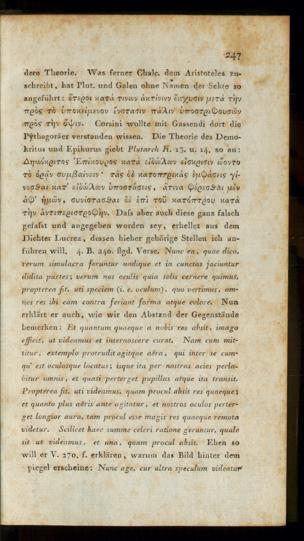 247
dere Theorie. Was ferner Chalc. dem Aristoteles zu-
schreibt, hat Plut. und Galen ohne Namen der Sekte so
angeführt: ἕτεροι κατά τινων ἀκτίνων ἔκχυσιν μετὰ τὴν
πρὸς τὸ ὑποκείμενον ἔνστασιν πάλιν ὑποστρεφουσῶν
πρὸς τὴν ὄψιν. Corsini wollte mit Gassendi dort die
Pythagoräer verstanden wissen. Die Theorie des Demo-
kritus und Epikurus giebt Plutarch K. 13. u. 14. so an:
Δημόκριτος Ἐπίκουρος κατὰ εἰδώλων εἴσκρισιν ᾤοντο
τὸ ὁρᾷν συμβαίνειν· τὰς δὲ κατοπτρικὰς ἐμφάσεις γί-
νεσθαι κατ' εἰδώλων ὑποστάσεις, ἅτινα φέρεσθαι μὲν
ἀφ' ἡμῶν, συνίστασθαι δὲ ἐπὶ τοῦ κατόπτρου κατὰ
τὴν ἀντιπεριστροφήν. Daſs aber auch diese ganz falsch
gefaſst und angegeben worden sey, erhellet aus dem
Dichter Lucrez, dessen hieher gehörige Stellen ich an-
führen will, 4. B. 240. flgd. Verse. Nunc ea, quae dico,
rerum simulacra feruntur undique et in cunctas jaciuntur
didita partes; verum nos oculis quia solis cernere quimus,
propterea fit, uti speciem (i. e. oculum), quo vertimus, om-
nes res ibi eam contra feriant forma atque colore. Nun
erklärt er auch, wie wir den Abstand der Gegenstände
bemerken: Et quantum quaeque a nobis res absit, imago
efficit, ut videamus et internoscere curat. Nam cum mit-
titur, extemplo protrudit agitque aëra, qui inter se cum-
qu' est oculosque locatus; isque ita per nostras acies perla-
bitur omnis, et quasi perterget pupillas atque ita transit.
Propterea fit, uti videamus, quam procul absit res quaeque;
et quanto plus aëris ante agitatur, et nostros oculos perter-
get longior aura, tam procul esse magis res quaeque remota
videtur. Scilicet haec summe celeri ratione geruntur, quale
sit ut videamus, et una, quam procul absit. Eben so
will er V. 270. f. erklären, warum das Bild hinter dem
piegel erscheine: Nunc age, cur ultra speculum videatur